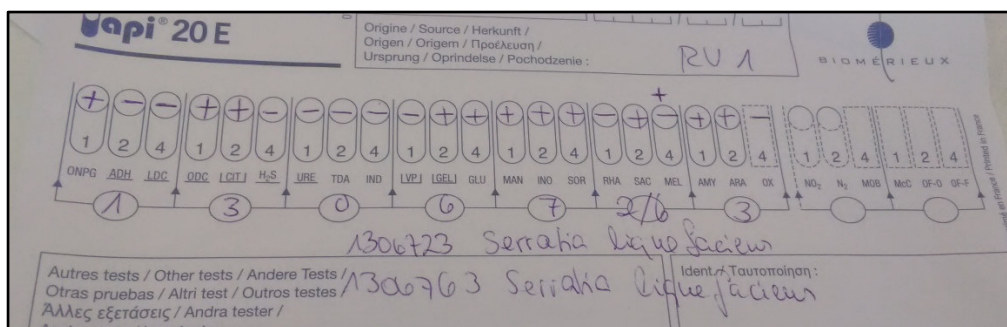 api® 20 E
Origine / Source / Herkunft /
Origen / Origem / Προέλευση /
Ursprung / Oprindelse / Pochodzenie :
RV 1
BIOMÉRIEUX
+
+ − − + + − − − − − + + + + + − + − + + −
1 2 4 1 2 4 1 2 4 1 2 4 1 2 4 1 2 4 1 2 4 1 2 4 1 2 4
ONPG ADH LDC ODC |CIT| H₂S URE TDA IND |VP| |GEL| GLU MAN INO SOR RHA SAC MEL AMY ARA OX NO₂ N₂ MOB McC OF-O OF-F
1 3 0 6 7 2/6 3
1306723 Serratia liquefaciens
Autres tests / Other tests / Andere Tests /
Otras pruebas / Altri test / Outros testes /
1306763 Serratia liquefaciens
Ident. / Ταυτοποίηση :
Άλλες εξετάσεις / Andra tester /
Printed in France /